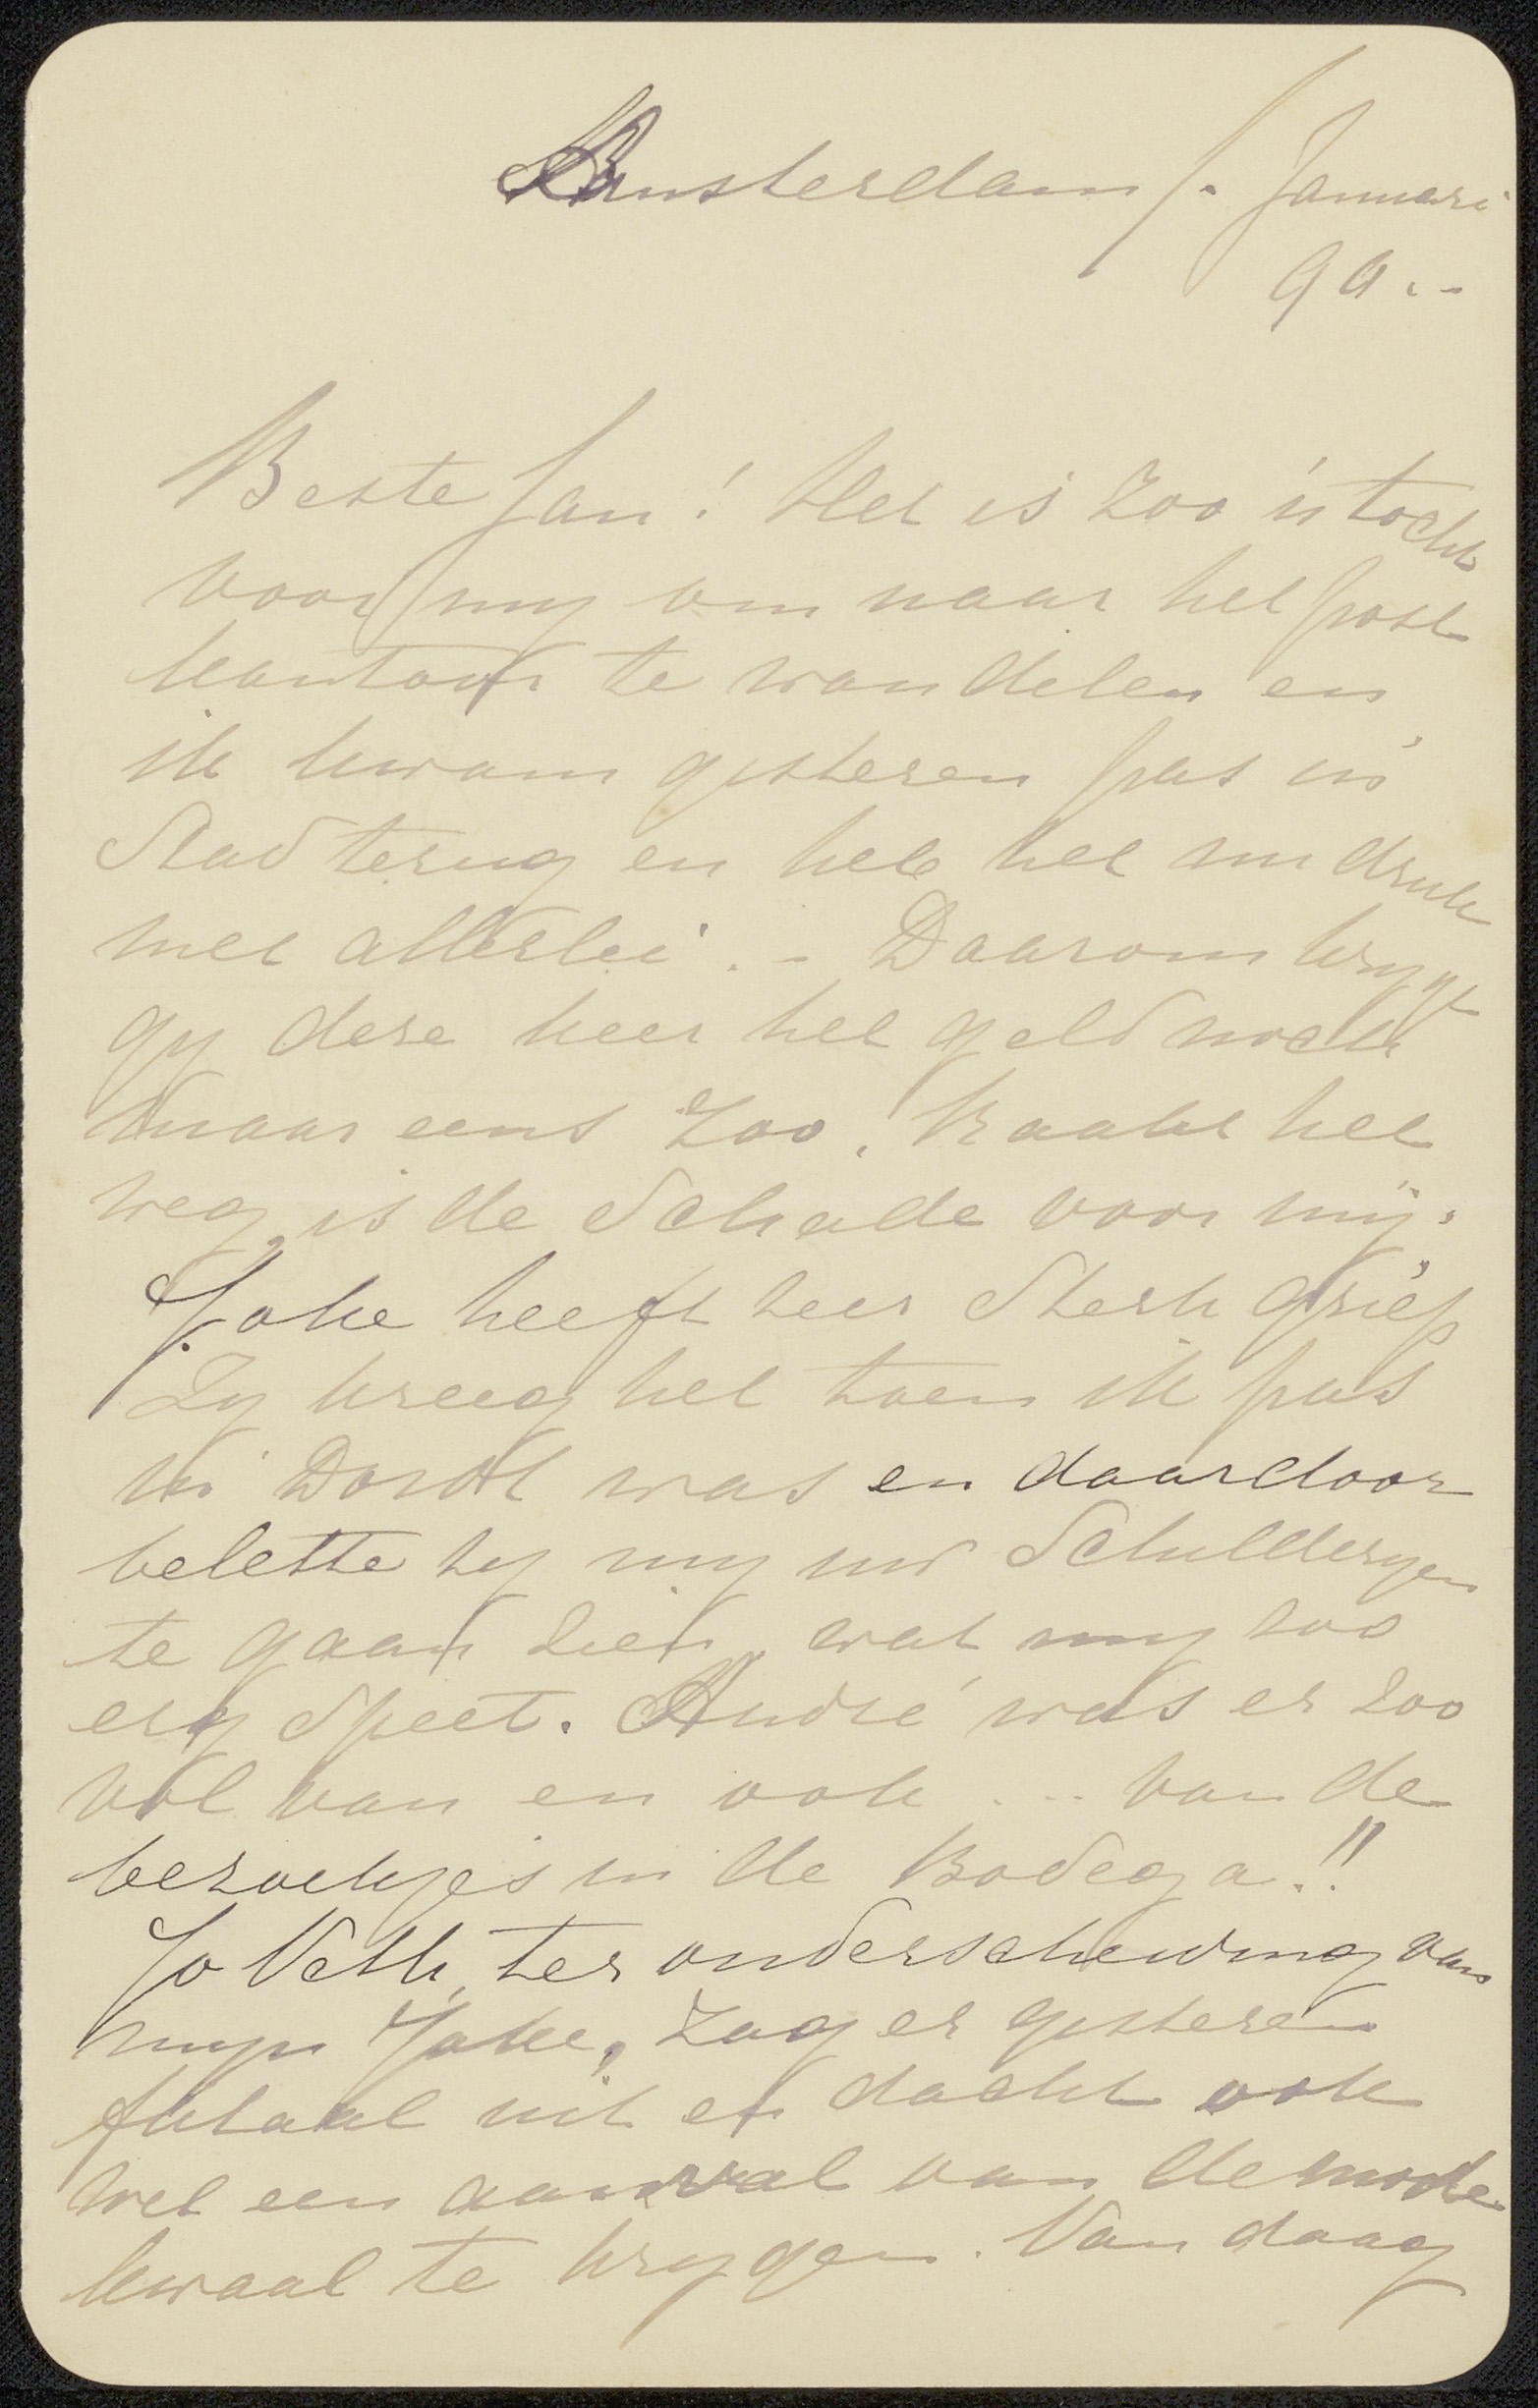 Amsterdam 1. Januari
90..
Beste Jan! Het is zoo 'n tocht
voor my om naar het post
kantoor te wandelen en
ik kwam gisteren pas in
Stad terug en heb het nu druk
met allerlei. - Daarom krygt
gy deze keer het geld noch
maar eens zoo. Raakt het
weg, is de Schade voor mij.
Joke heeft zeer Sterk griep
Zy kreeg het toen ik pas
in Dordt was en daardoor
belette zy my uw Schilderyen
te gaan zien, wat my zoo
erg Speet. André was er zoo
vol van en ook ... van de
bezoekjes in de Bodega!!
Jo Veth, ter onderscheiding van
myn Joke, zag er gisteren
fataal uit en dacht ook
wel een aanval van de mode
kwaal te krygen. Van daag